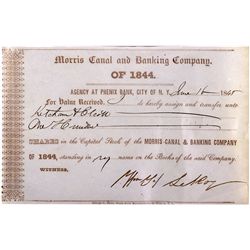 Morris Canal and Banking Company.
OF 1844.
AGENCY AT PHENIX BANK, CITY OF N. Y. June 16 184
For Value Received, do hereby assign and transfer unto
Ketchum &
One Hundred
SHARES in the Capital Stock of the MORRIS CANAL & BANKING COMPANY
OF 1844, standing in my name on the Books of the said Company.
WITNESS,